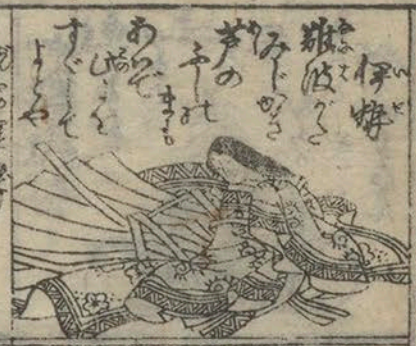 伊勢
難波がた
みじかき
芦の
ふしの
まも
あはで
此よを
すぐして
よとや